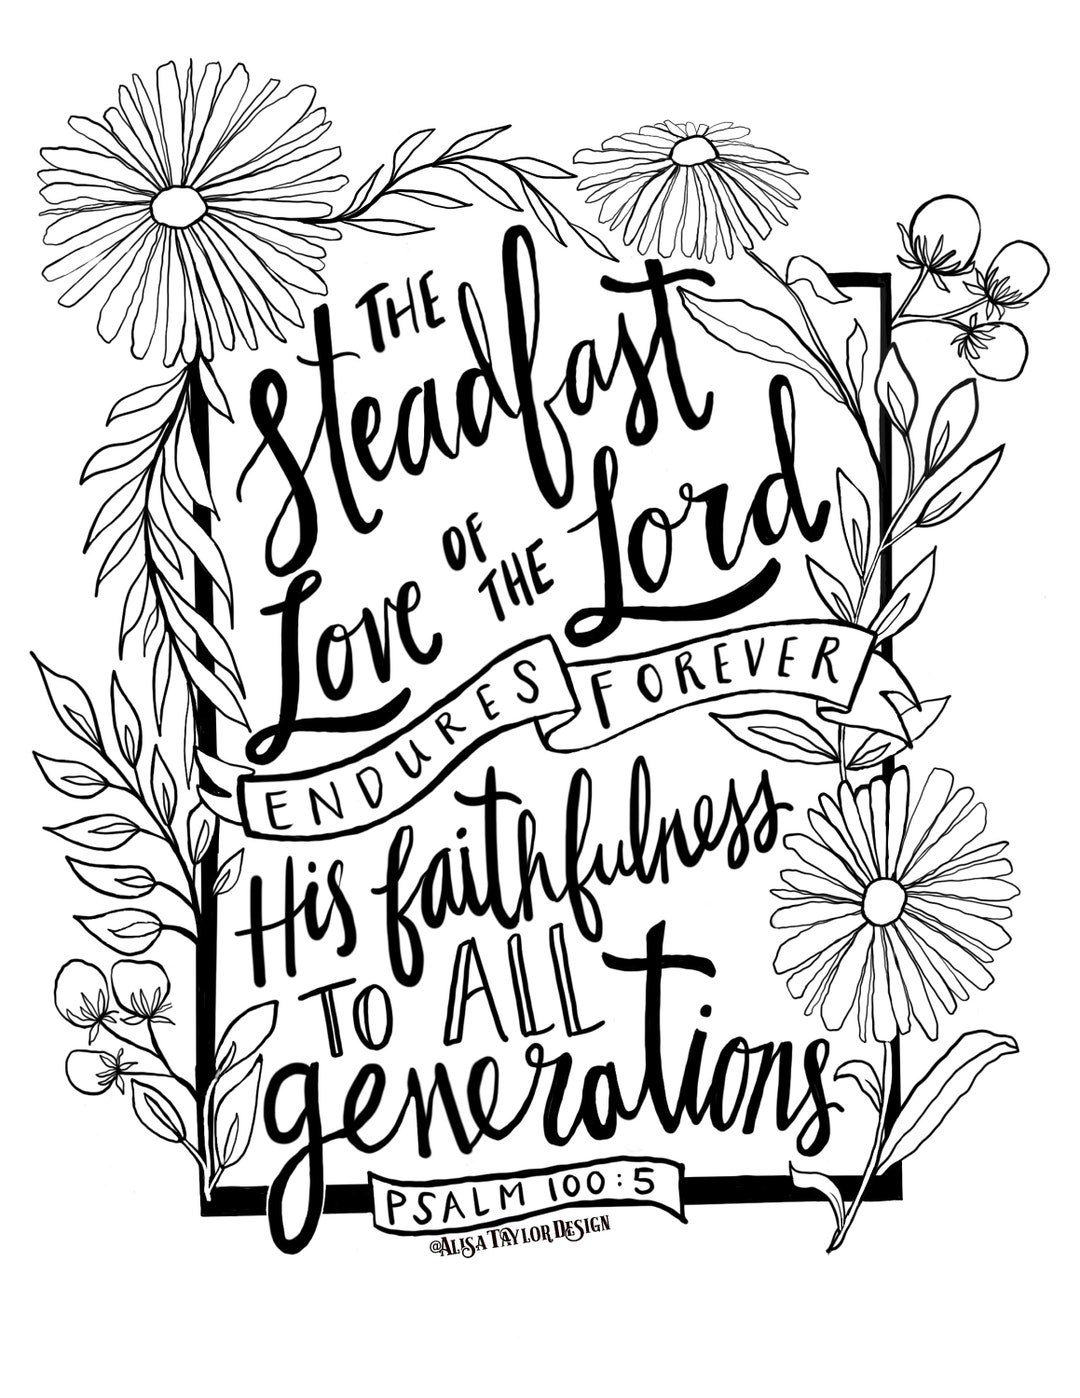 THE
Steadfast
Love OF THE Lord
ENDURES FOREVER
His faithfulness
TO ALL
generations
PSALM 100:5
@ALISA TAYLOR DESIGN